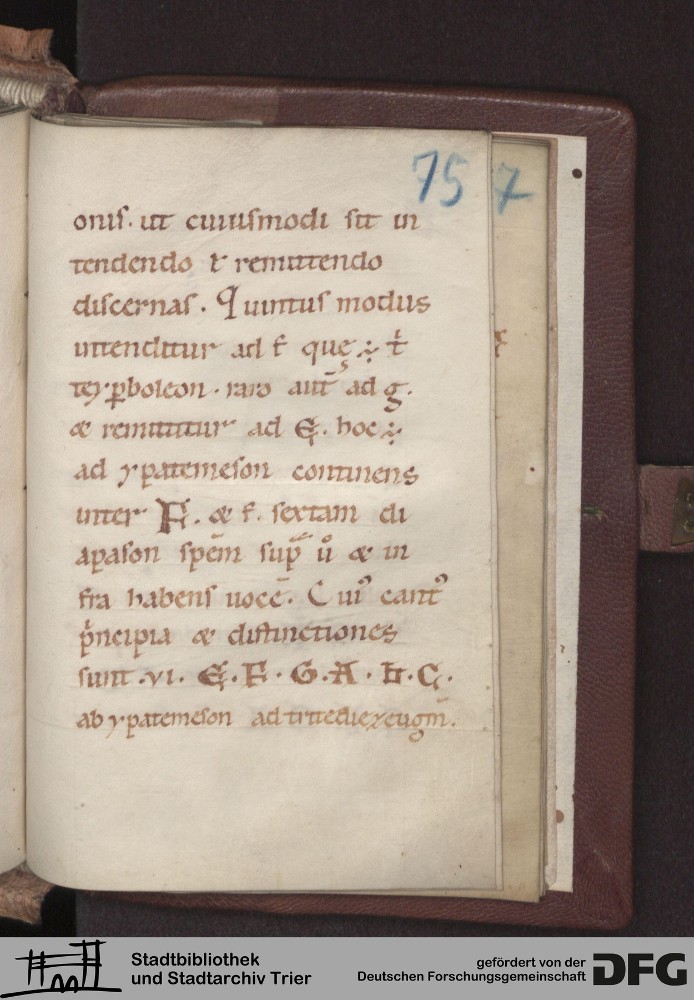 75 7
onis. ut cuiusmodi sit in
tendendo ł remittendo
discernas. Quintus modus
intenditur ad f que ÷ t̄
teyꝑboleon. raro aut̄ ad g.
& remittitur ad E. hoc ÷
ad ypatemeson continens
inter F. & f. sextam di
apason spēm sup̄ ů & in
fra habens uocē. Cui᷒ cant᷒
pͥncipia & distinctiones
sunt .vi. E. F. G. A. h. C.
ab ypatemeson ad tritediezeugm̄.
Stadtbibliothek
und Stadtarchiv Trier
gefördert von der
Deutschen Forschungsgemeinschaft
DFG